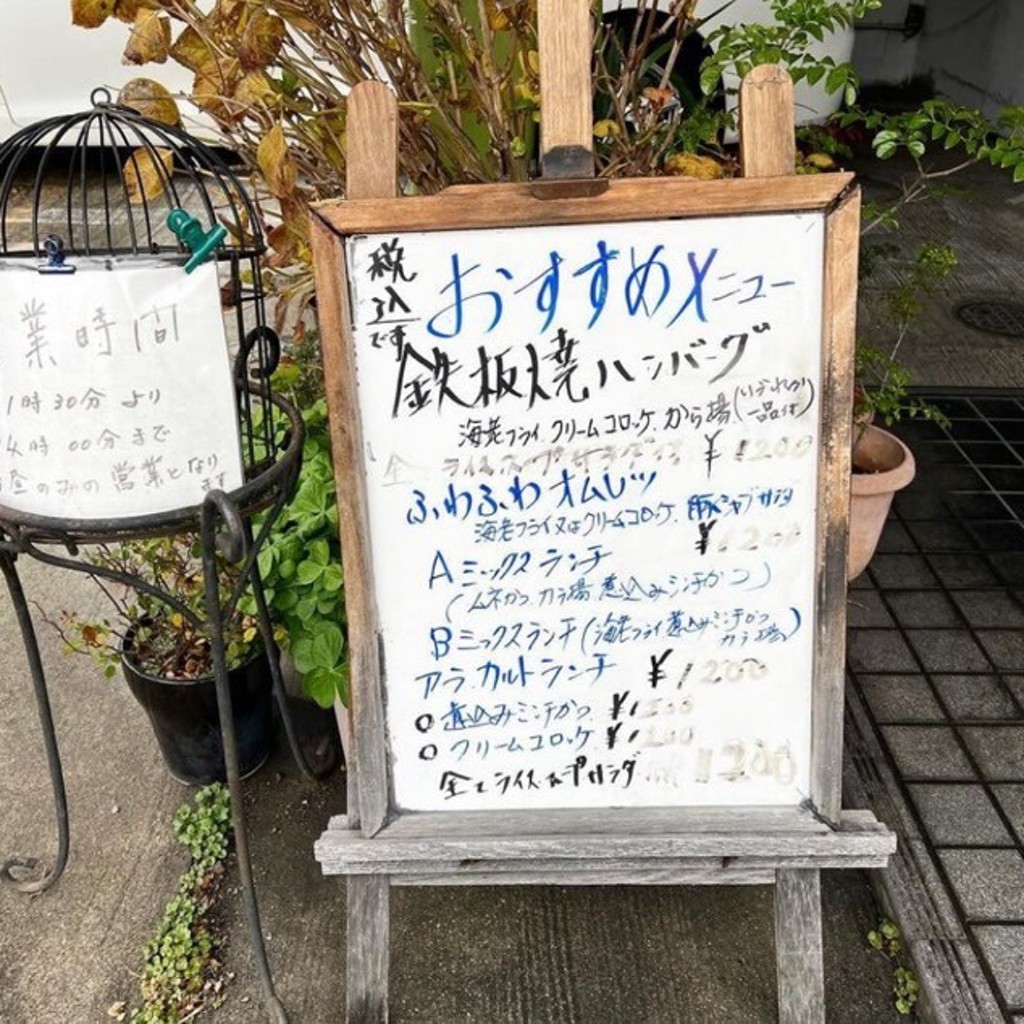 業時間
1時30分より
4時00分まで
昼のみの営業となり
ます
税込です
おすすめメニュー
鉄板焼ハンバーグ
海老フライ クリームコロッケ から揚(いづれか一品付)
ライス スープ サラダ ¥1200
ふわふわオムレツ
海老フライ又はクリームコロッケ 豚シャブサラダ
¥1200
Aミックスランチ
(ムネかつ カラ揚 煮込みミンチかつ)
Bミックスランチ(海老フライ 煮込みミンチかつ カラ揚)
アラカルトランチ ¥1200
○煮込みミンチかつ ¥1200
○クリームコロッケ ¥1200
全てライス スープ サラダ付 1200